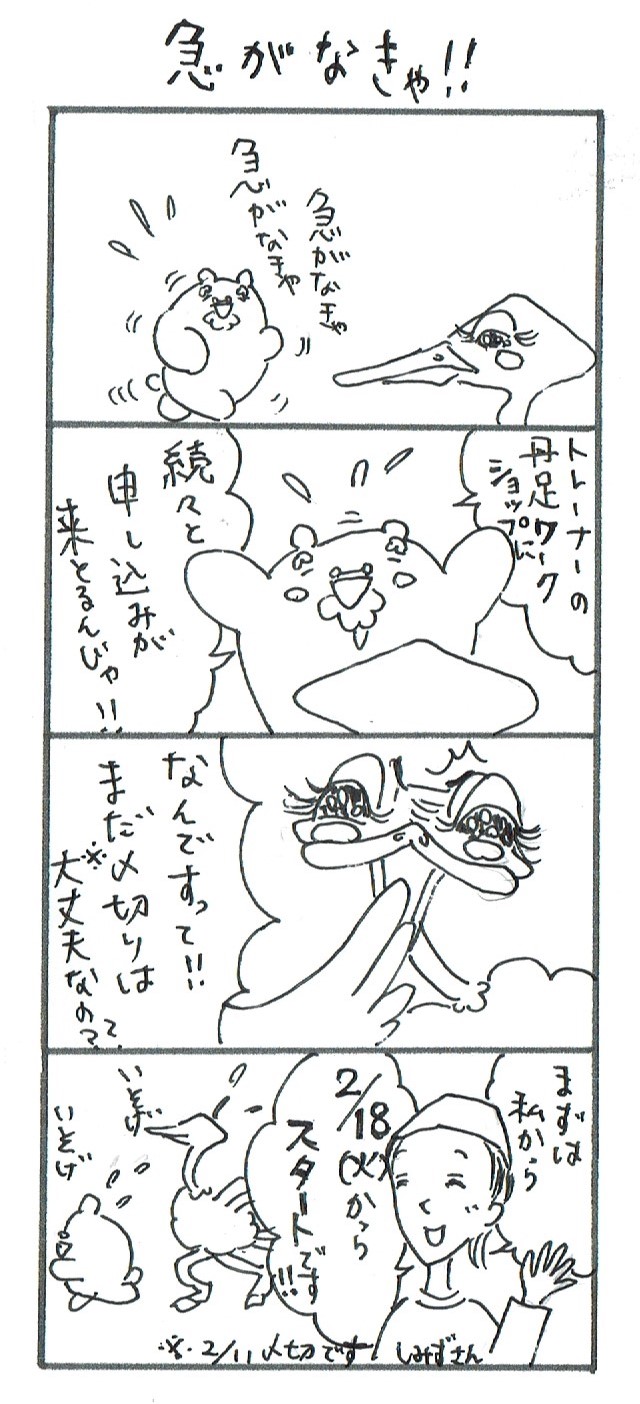 急がなきゃ!!
急がなきゃ
急がなきゃ
トレーナーの
丹足ワーク
ショップに
続々と
申し込みが
来とるんじゃ!!
なんですって!!
まだ〆切りは
※大丈夫なの??
まずは
私から
2/18
(火)から
スタートです!!
いそげ
いそげ
※2/11〆切です
しみずさん